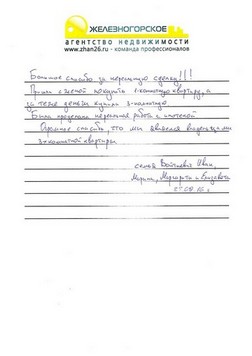 ЖЕЛЕЗНОГОРСКОЕ
агентство недвижимости
www.zhan26.ru - команда профессионалов
Большое спасибо за нереальную сделку!!!
Пришли с женой покупать 1-комнатную квартиру, а
за те же деньги купили 3-комнатную
Была проделана нереальная работа с ипотекой
Огромное спасибо, что мы являемся владельцами
3х комнатной квартиры
семья Войткевич Иван,
Марина, Маргарита и Елизавета